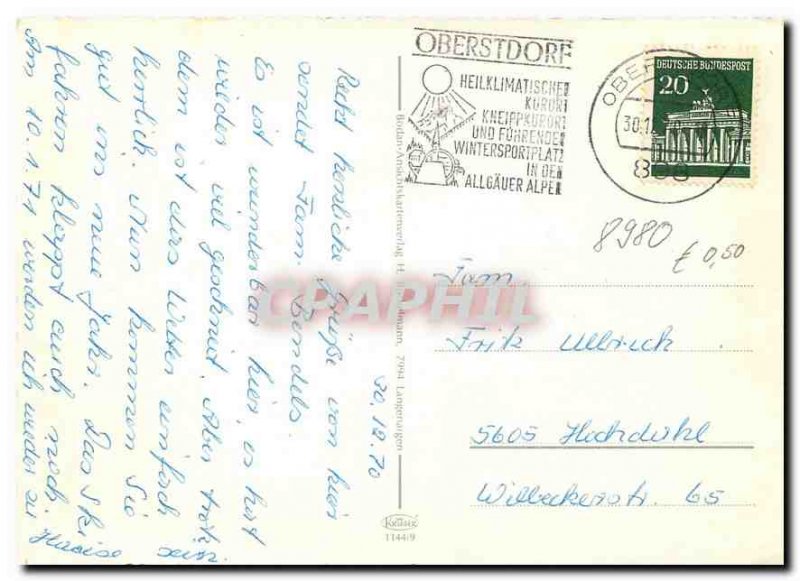 OBERSTDORF
HEILKLIMATISCHER
KURORT
KNEIPPKURORT
UND FÜHRENDER
WINTERSPORTPLATZ
IN DEN
ALLGÄUER ALPEN
DEUTSCHE BUNDESPOST
20
30.1
898
8980
€ 0,50
30.12.70
Recht herzliche Grüße von hier
sendet Fam. Bendels
Es ist wunderbar hier, es hat
wieder viel geschneit. Aber trotz
dem ist das Wetter einfach
herrlich. Nun kommen Sie
gut ins neue Jahr. Das Ski
fahren klappt auch noch.
Am 10.1.71 werden ich wieder zu
Hause sein.
Fam.
Fritz Ullrich
5605 Hochdahl
Willbeckerstr. 65
Bodan-Ansichtskartenverlag H. 7994 Langenargen
KRÜGER
1144/9
CPAPHIL